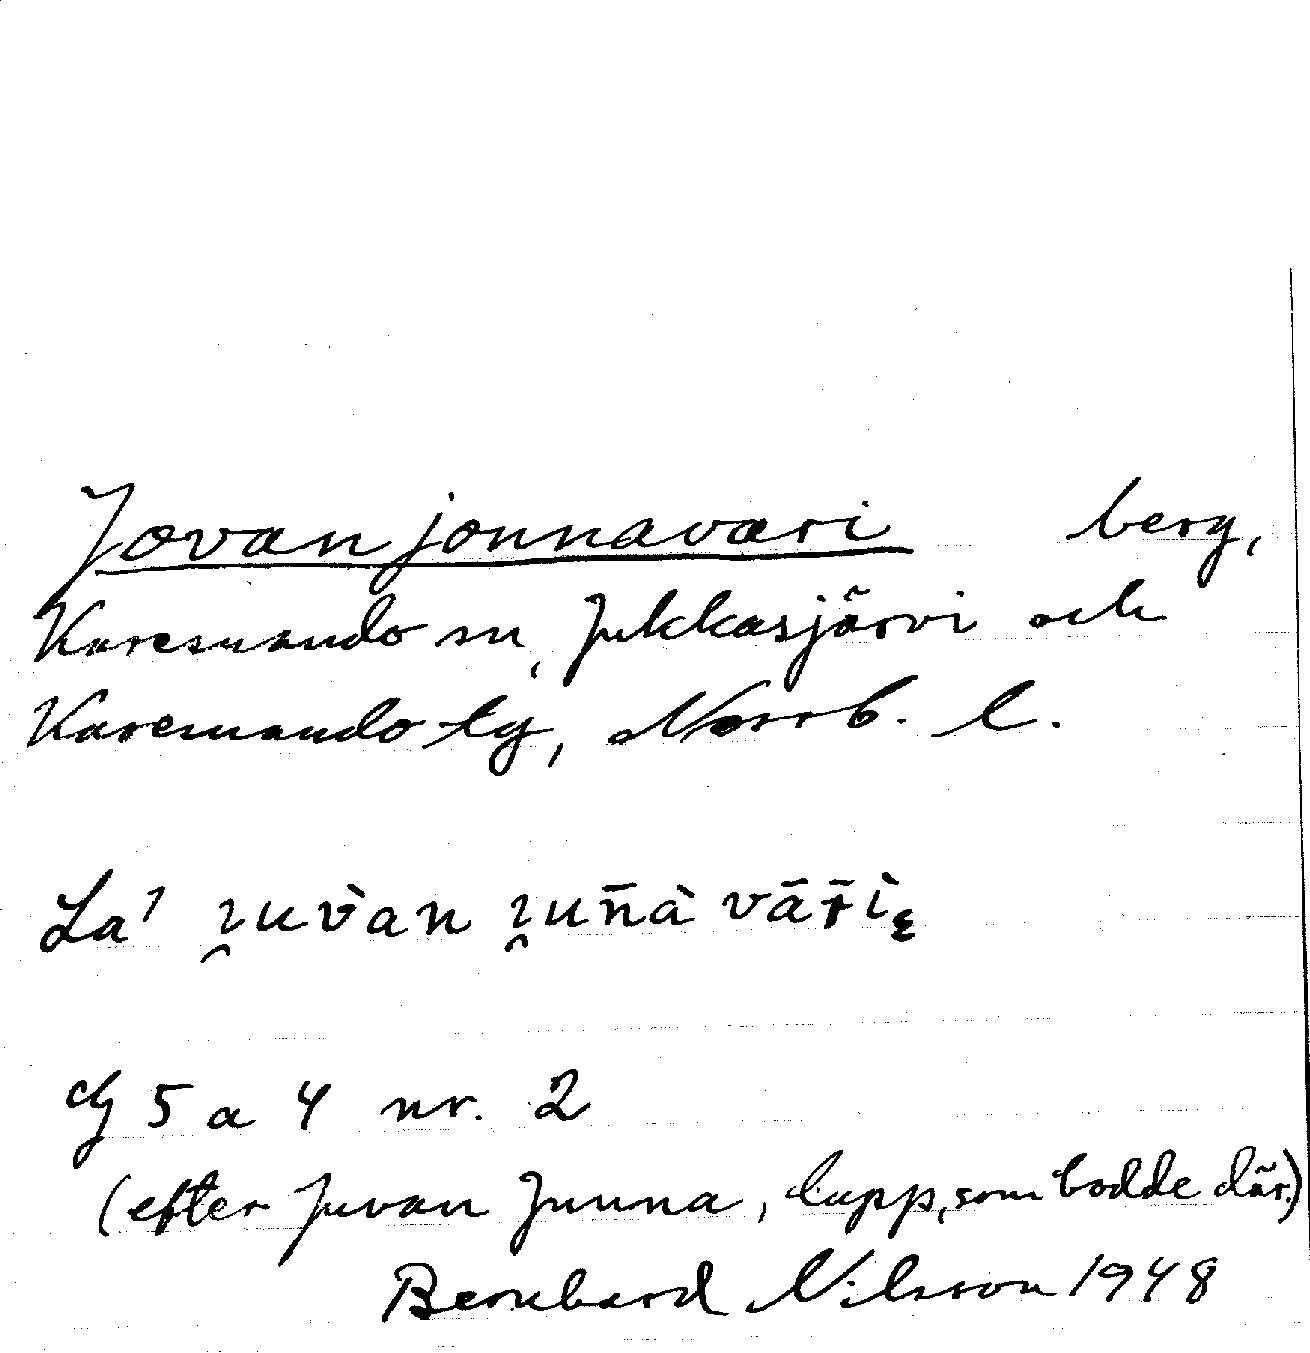 Jovanjonnavari berg,
Karesuando sn, Jukkasjärvi och
Karesuando tg, Norrb. l.
La¹ i̯uv̀an i̯un̄à vār̄ìę
cfj 5 a 4 nr. 2
(efter Juvan Junna, lapp, som bodde där)
Bernhard Nilsson 1948